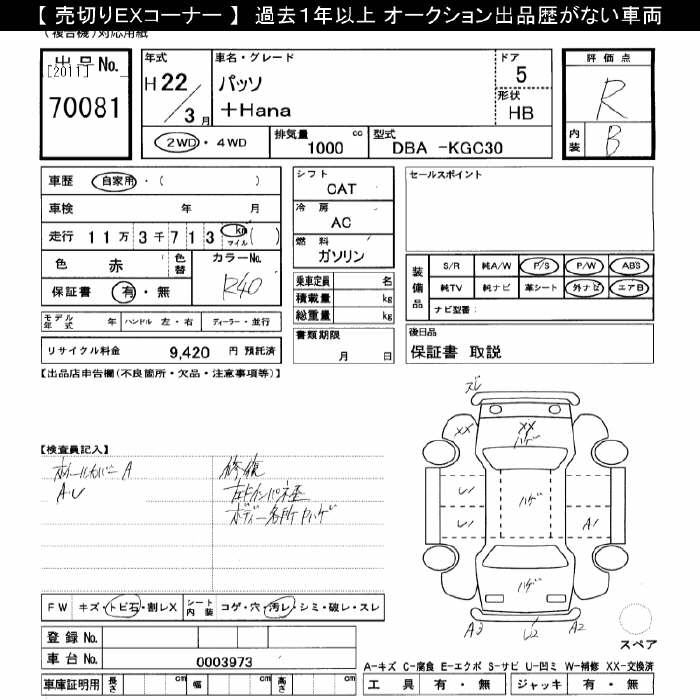 【 売切りEXコーナー 】 過去1年以上 オークション出品歴がない車両
(複合機)対応用紙
出品No.
[2011]
70081
年式
H22/3月
車名・グレード
パッソ
+Hana
ドア
5
形状
HB
2WD・4WD
排気量 cc
1000
型式
DBA -KGC30
評価点
R
内装
B
車歴 自家用・( )
車検 年 月
走行 11万3千713 km マイル ( )
色 赤 色替
カラーNo.
R40
保証書 有・無
モデル年式 年 ハンドル 左・右 ディーラー・並行
リサイクル料金 9,420 円 預託済
シフト
CAT
冷房
AC
燃料
ガソリン
乗車定員 名
積載量 kg
総重量 kg
書類期限
月 日
セールスポイント
装備品
S/R 純A/W P/S P/W ABS
純TV 純ナビ 革シート 外ナビ エアB
ナビ型番:
後日品
保証書 取説
【出品店申告欄(不良箇所・欠品・注意事項等)】
【検査員記入】
ホイールカバーA
A・U
修復
ボディー各所Pハゲ
ズレ
XX
XX
ハゲ
U
ハゲ
U
A1
ハゲ
A3
U2
A2
スペア
FW キズ・トビ石・割レX シート内装 コゲ・穴・汚レ・シミ・破レ・スレ
登録No.
車台No. 0003973
車庫証明用 長さ cm 幅 cm 高さ cm
A-キズ C-腐食 E-エクボ S-サビ U-凹ミ W-補修 XX-交換済
工具 有・無 ジャッキ 有・無